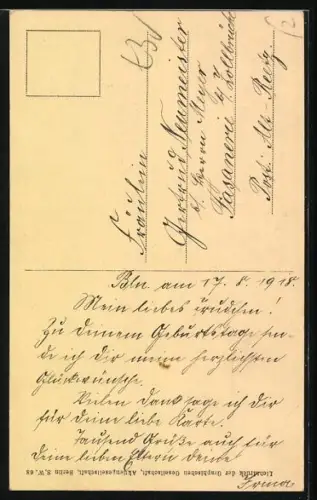 Fräulein
Gertrud Neumeister
b/ Herrn Meyer
Fasanerie b/ Zollbrücke
Post: Alt-Reetz.
Bln. am 17. 8. 1918.
Mein liebes Trudchen!
Zu deinem Geburtstage sen-
de ich dir meine herzlichsten
Glückwünsche.
Vielen Dank sage ich dir
für deine liebe Karte.
Tausend Grüße auch für
deine lieben Eltern deine
Irma
der Graphischen Gesellschaft, Aktiengesellschaft, Berlin S.W. 68